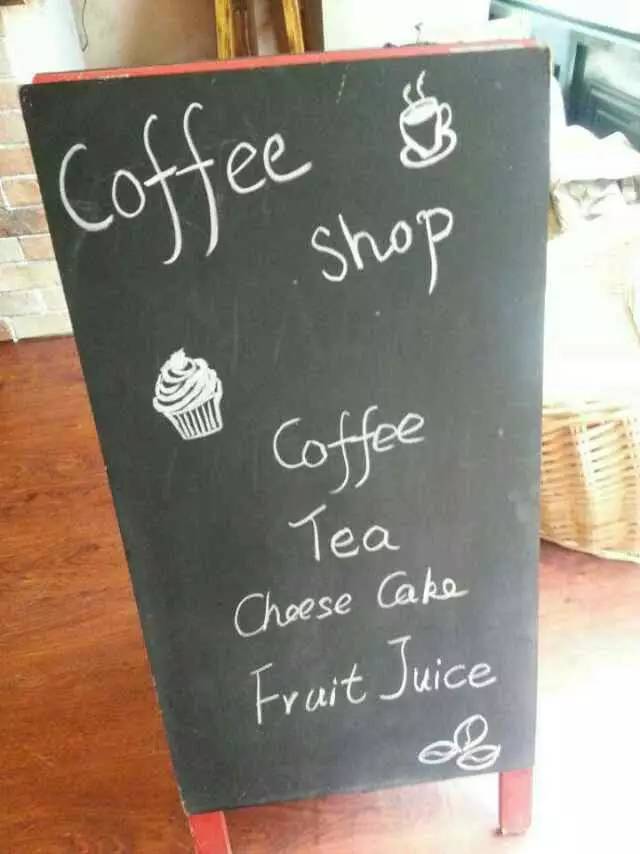 Coffee
Shop
Coffee
Tea
Cheese Cake
Fruit Juice